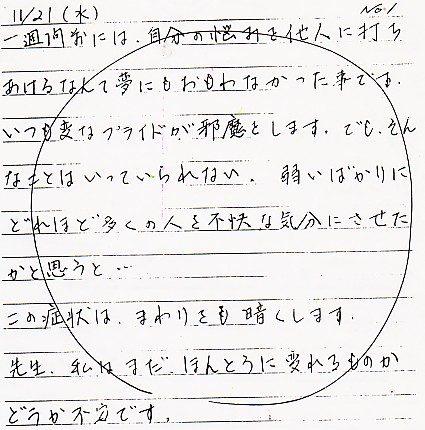 11/21(水) NO.1
一週間前には、自分の悩みを他人に打ち
あけるなんて夢にもおもわなかった事です。
いつも変なプライドが邪魔をします。でも、そん
なことはいっていられない。弱いばかりに
どれほど多くの人を不快な気分にさせた
かと思うと…
この症状は、まわりをも暗くします。
先生、私はまだ、ほんとうに変れるものか
どうか不安です。